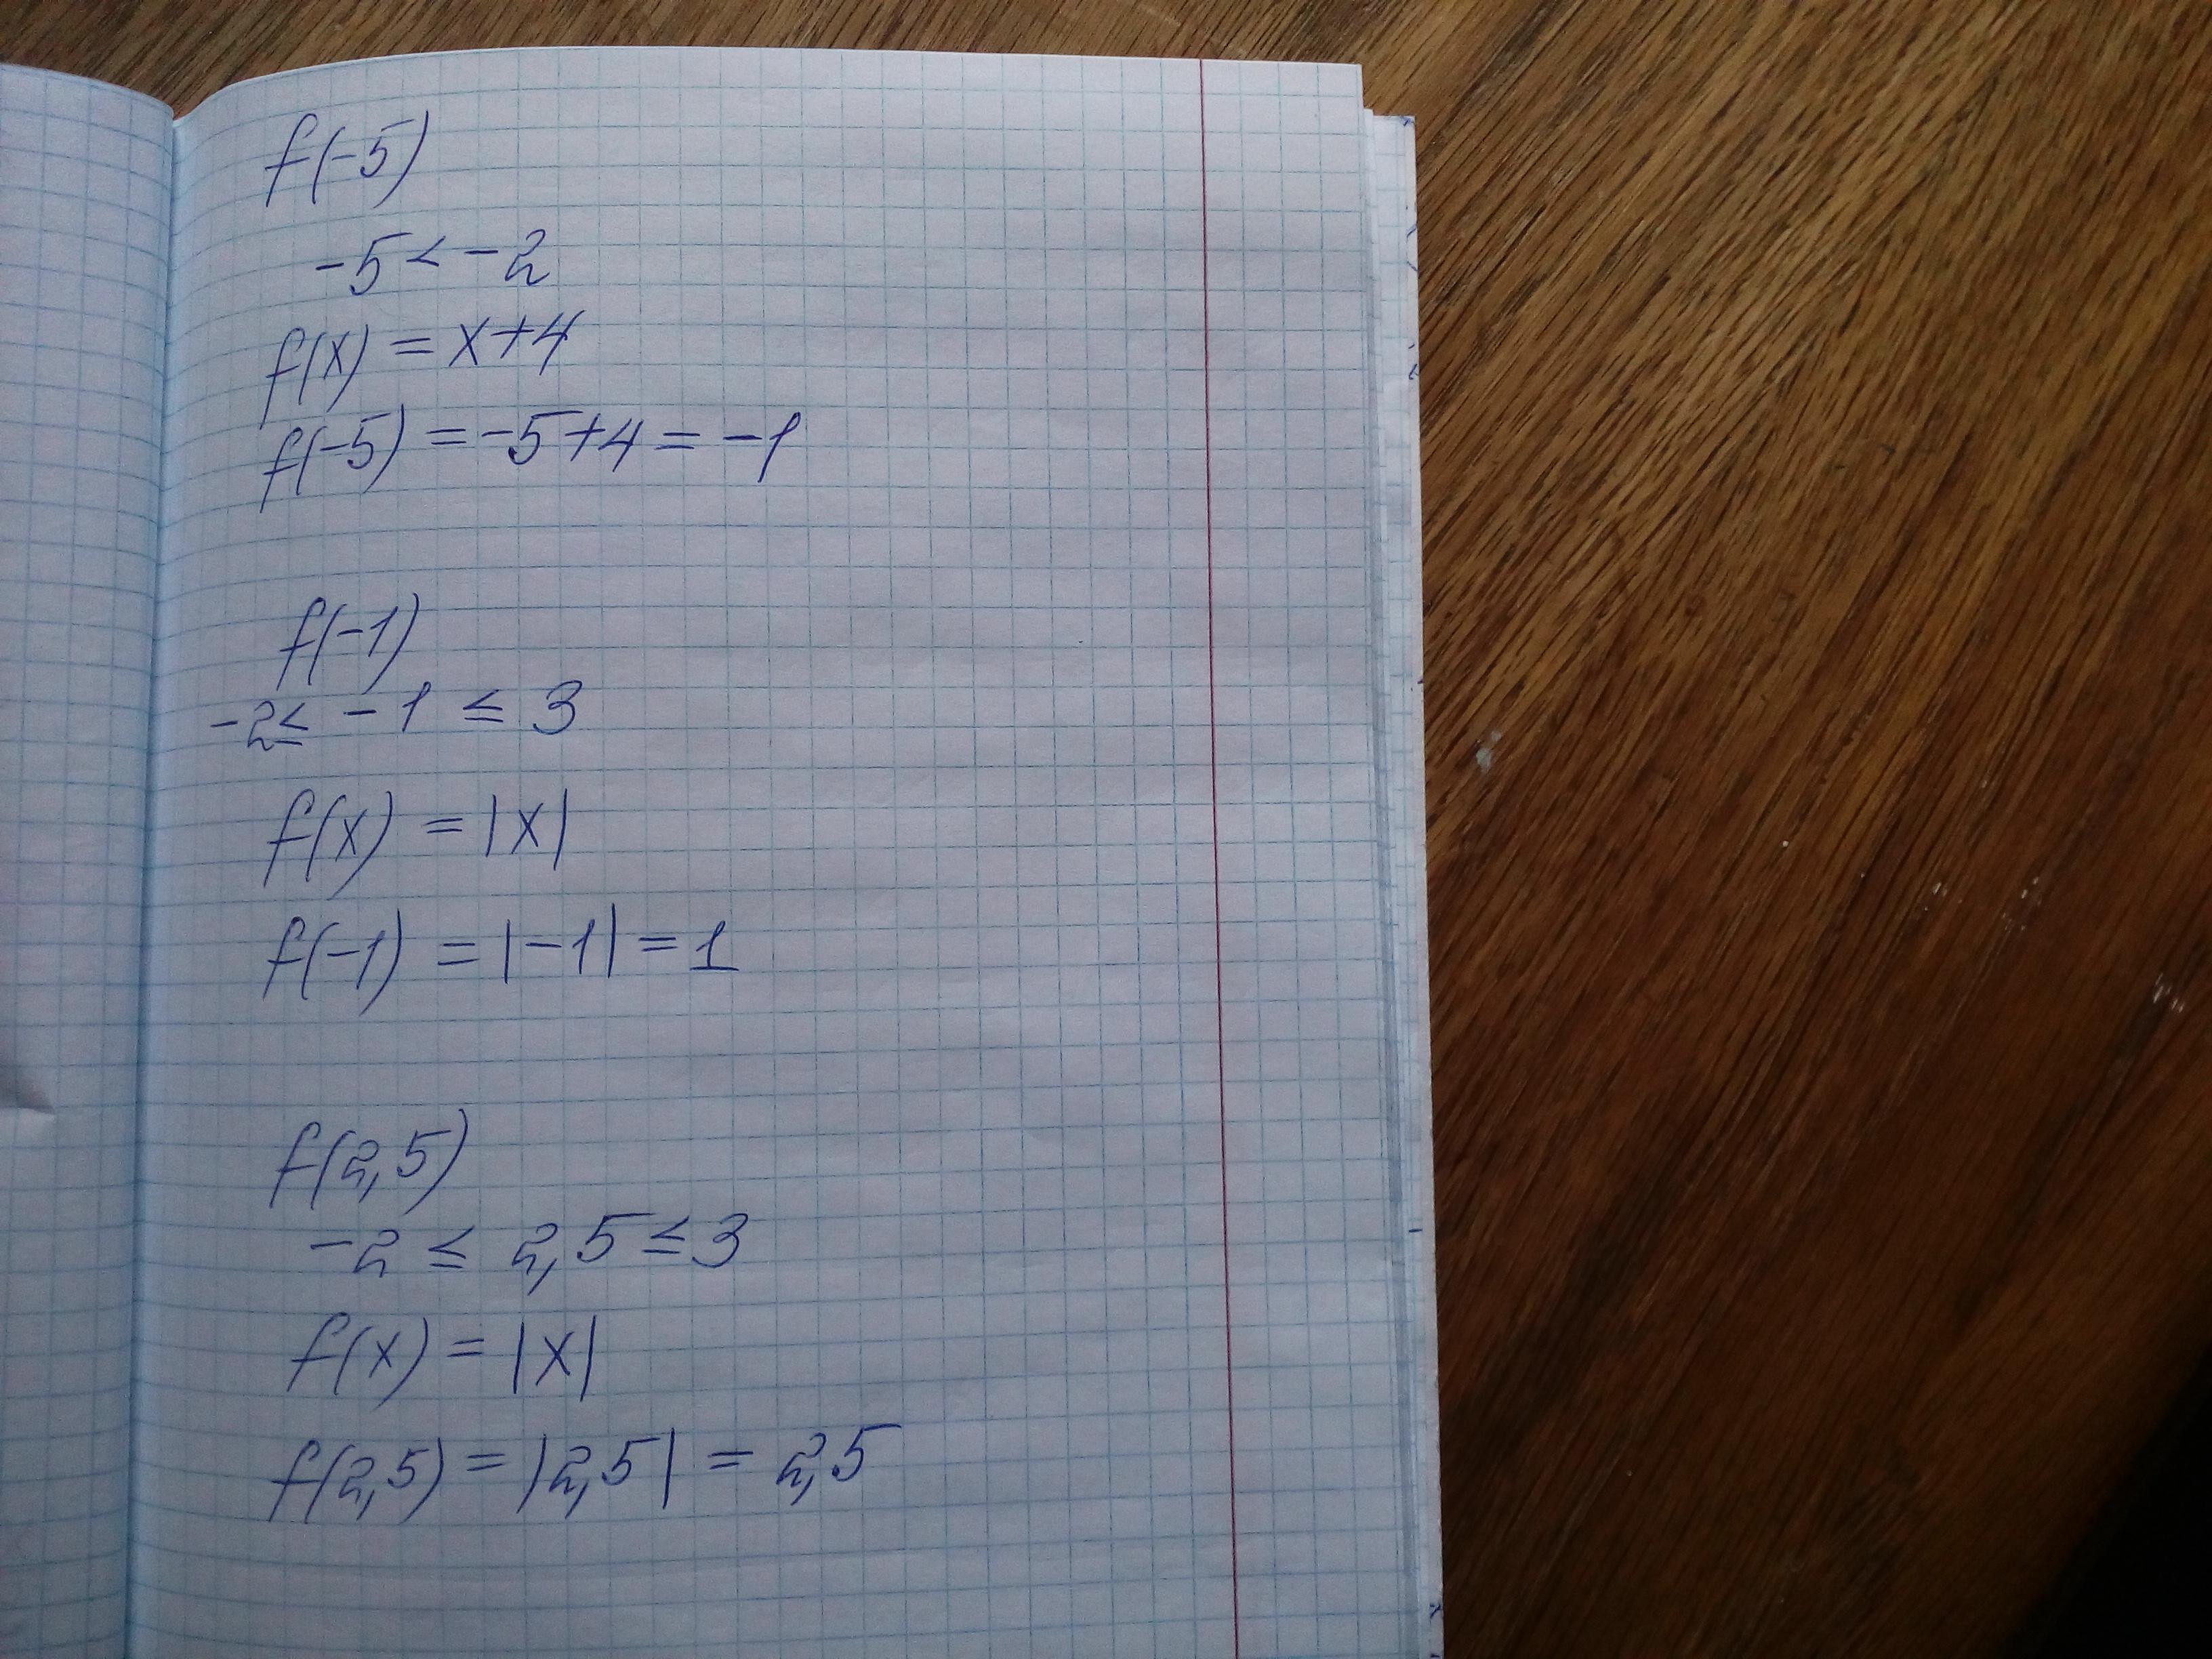 f(-5)
-5 < -2
f(x) = x+4
f(-5) = -5+4 = -1
f(-1)
-2 ≤ -1 ≤ 3
f(x) = |x|
f(-1) = |-1| = 1
f(2,5)
-2 ≤ 2,5 ≤ 3
f(x) = |x|
f(2,5) = |2,5| = 2,5